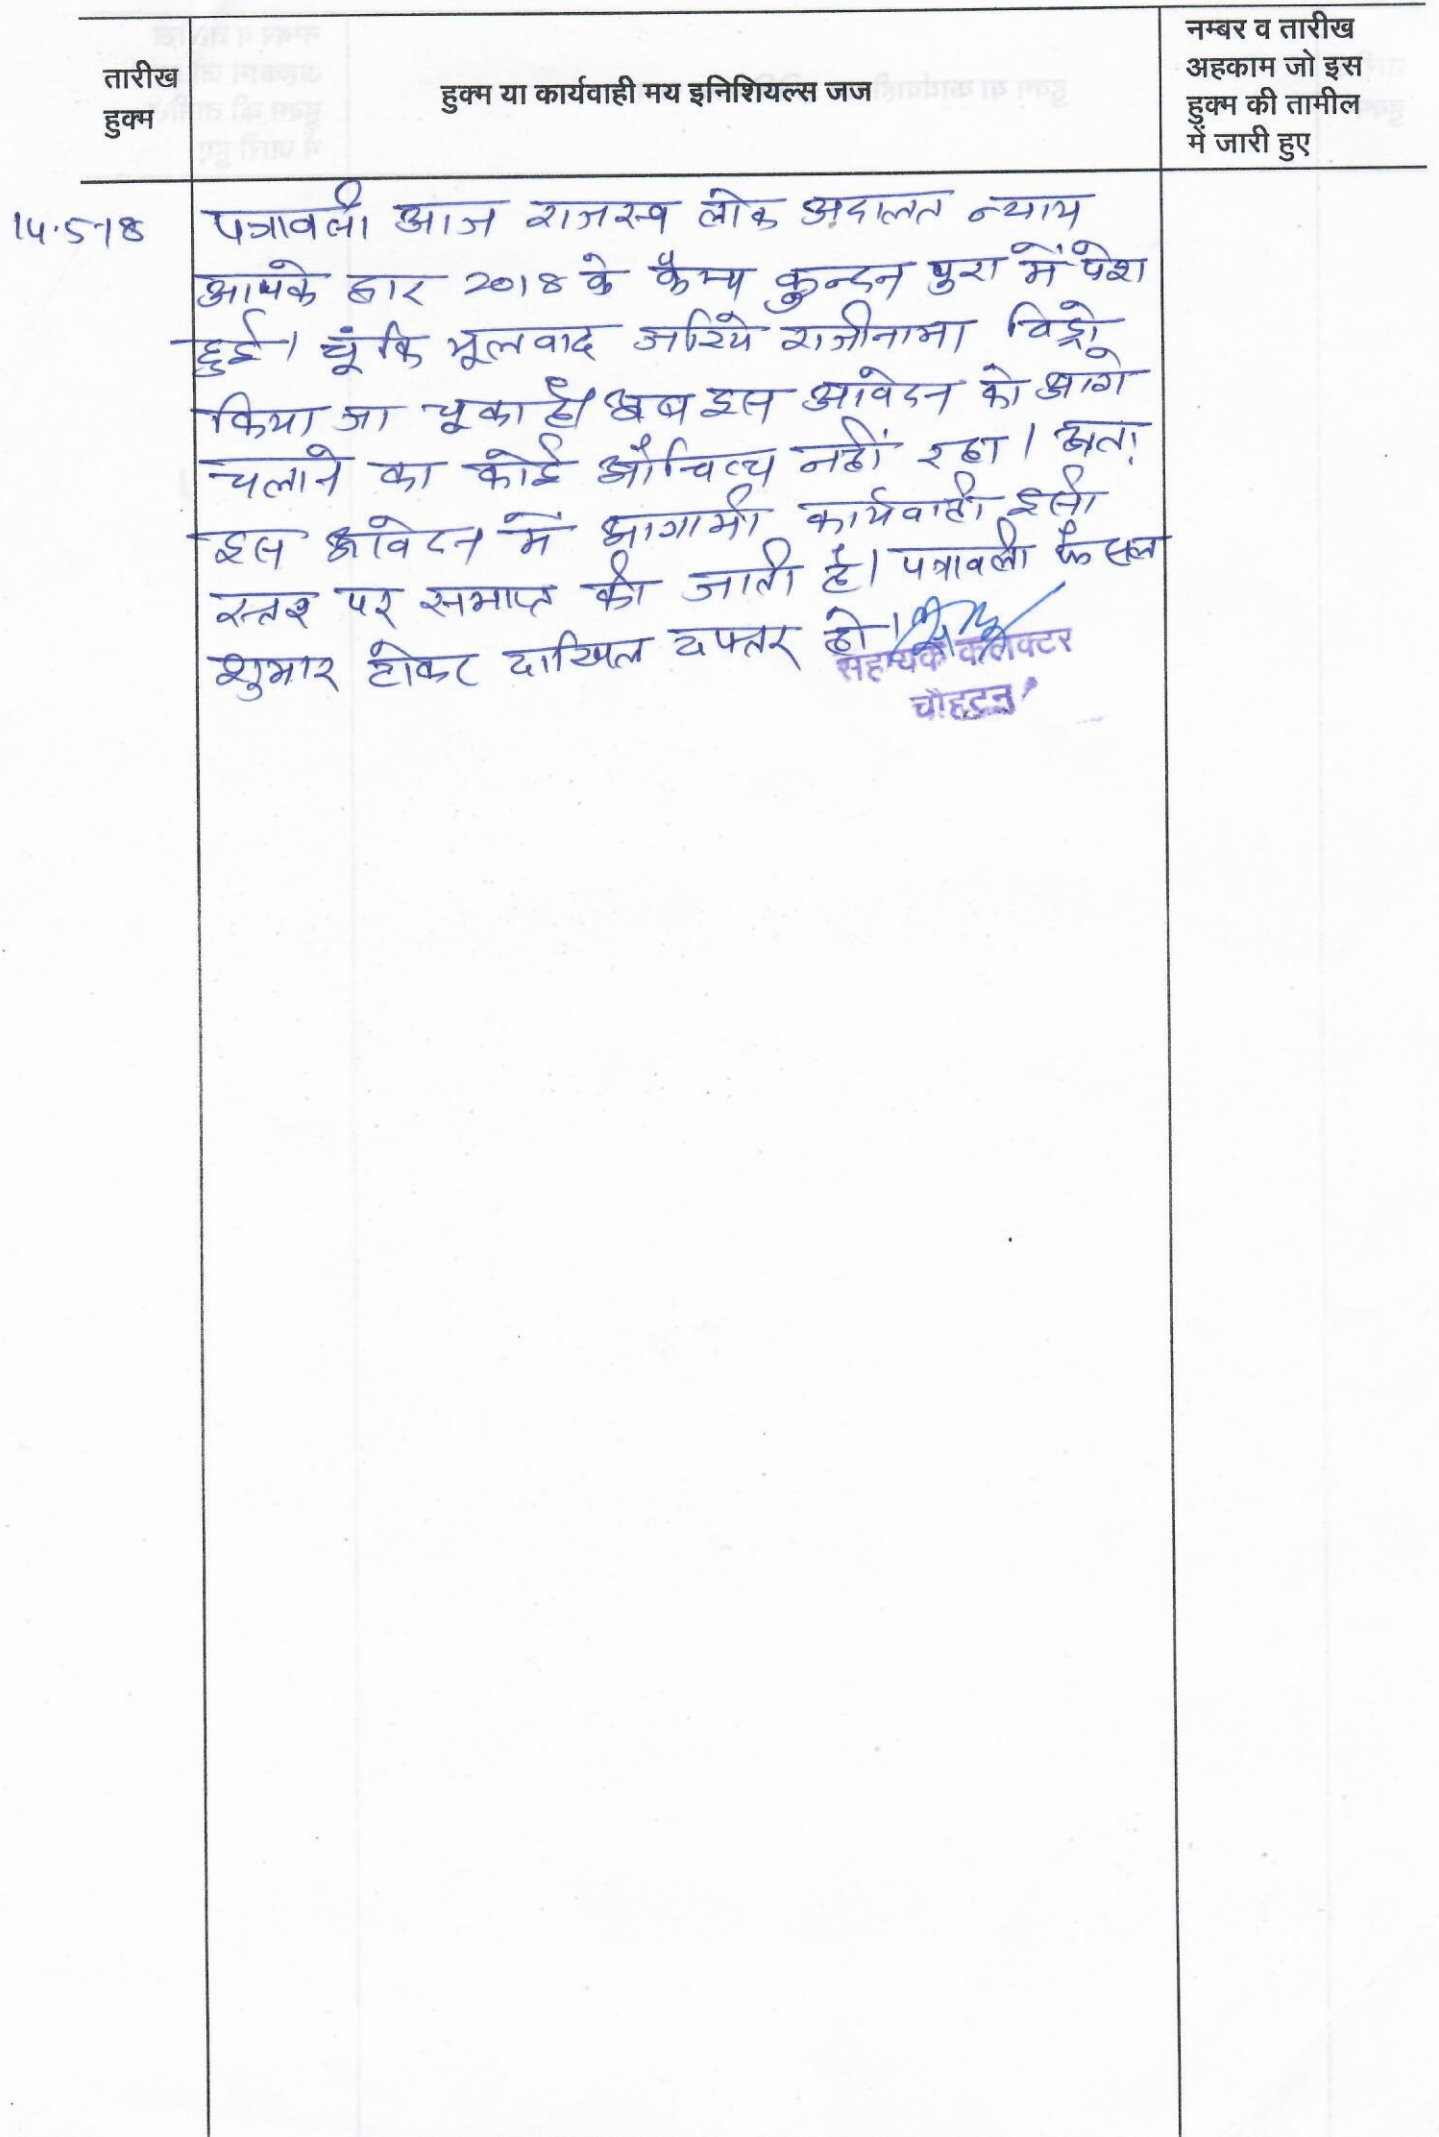 तारीख
हुक्म
हुक्म या कार्यवाही मय इनिशियल्स जज
नम्बर व तारीख
अहकाम जो इस
हुक्म की तामील
में जारी हुए
14.5.18
पत्रावली आज राजस्व लोक अदालत न्याय
आपके द्वार 2018 के कैम्प कुन्दन पुरा में पेश
हुई। चूंकि मूलवाद जरिये राजीनामा विड्रो
किया जा चूका है। अब इस आवेदन को आगे
चलाने का कोई औचित्य नहीं रहा। अतः
इस आवेदन में आगामी कार्यवाही इसी
स्तर पर समाप्त की जाती है। पत्रावली फैसल
शुमार होकर दाखिल दफ्तर हो।
सहायक कलेक्टर
चौहटन